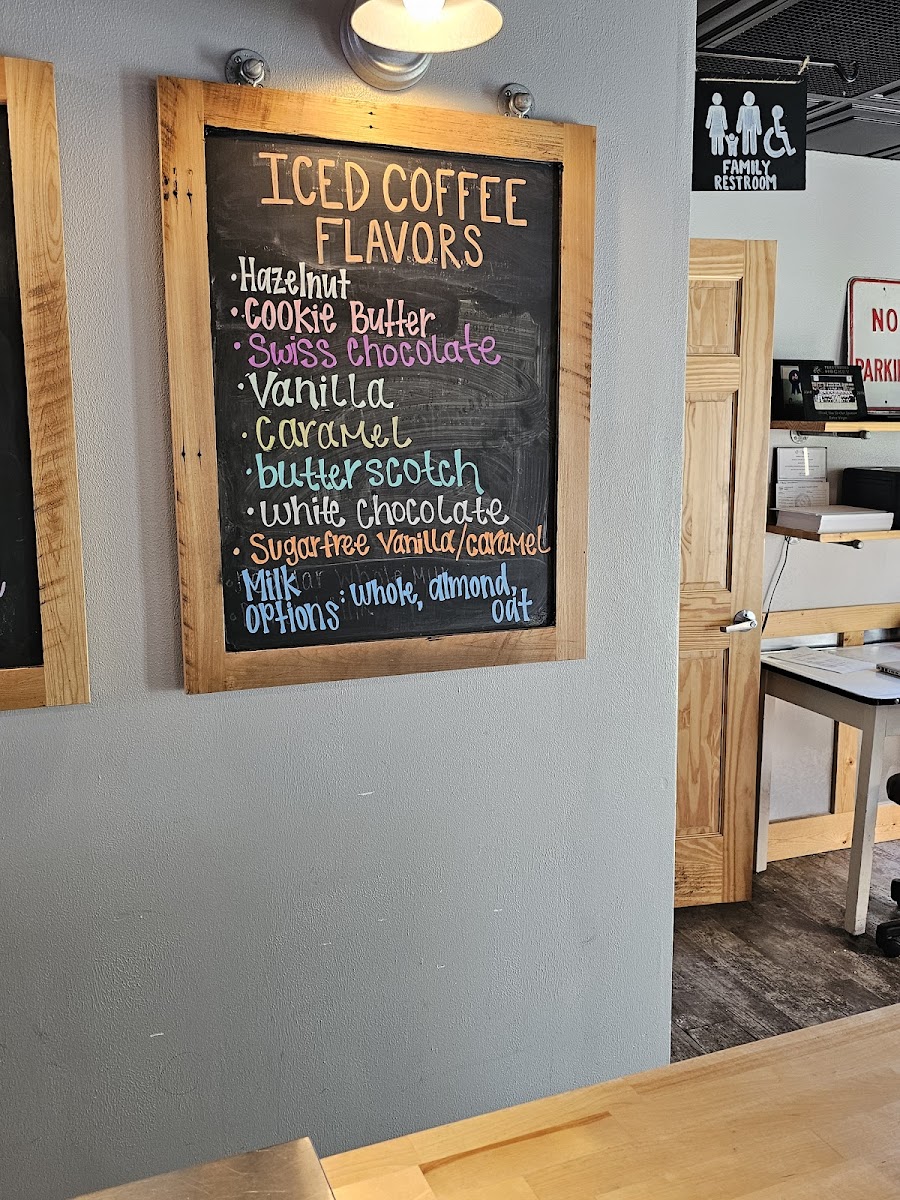 ICED COFFEE
FLAVORS
• Hazelnut
• Cookie Butter
• Swiss Chocolate
• Vanilla
• Caramel
• butterscotch
• White Chocolate
• Sugarfree Vanilla/caramel
Milk
options: whole, almond,
oat
FAMILY
RESTROOM
NO
PARKI